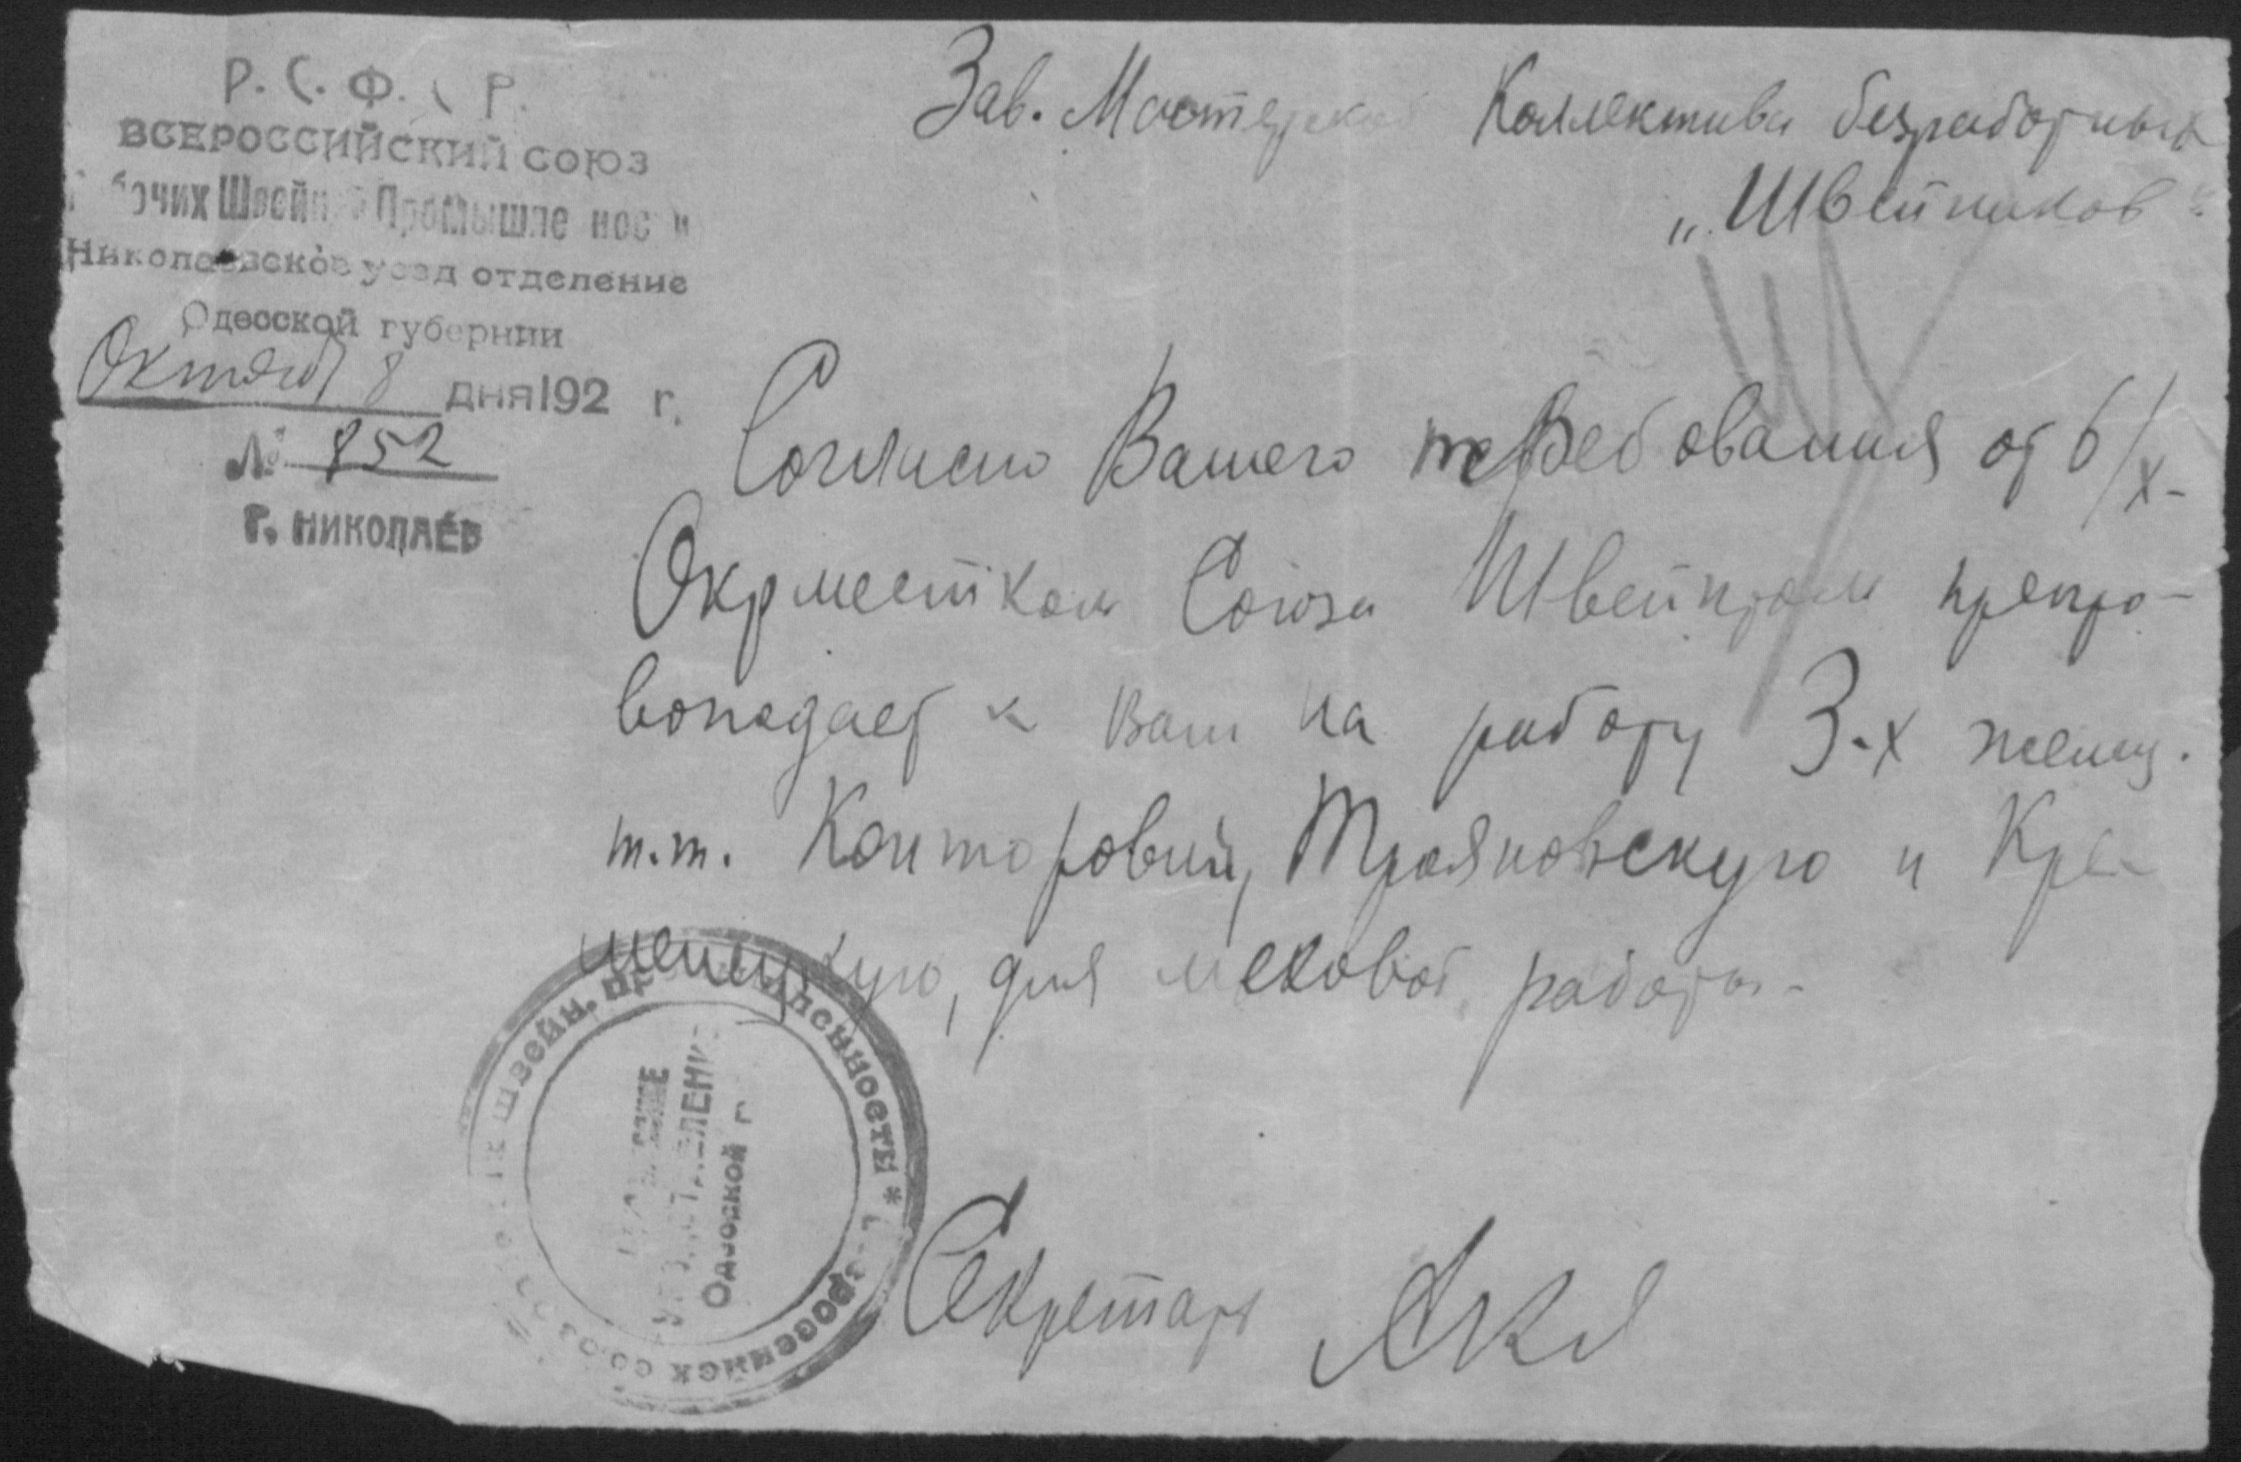 Р. С. Ф. С. Р.
ВСЕРОССИЙСКИЙ СОЮЗ
Рабочих Швейной Промышленности
Николаевское уезд отделение
Одесской губернии
Октября 8 дня 192 г.
№ 852
Г. НИКОЛАЕВ
Зав. Мастерской Коллектива безработных
„Швейников“
Согласно Вашего требования от 6/X-
Окрместком Союза Швейпром препро-
вождает к Вам на работу 3-х женщ.
т.т. Конторович, Трояновскую и Кре-
менецкую, для меховой работы.
Секретарь
ВСЕРОССИЙСК СОЮЗ РАБОЧИХ ШВЕЙН. ПРОМЫШЛЕННОСТИ *
ОТДЕЛЕНИЕ
Одесской г